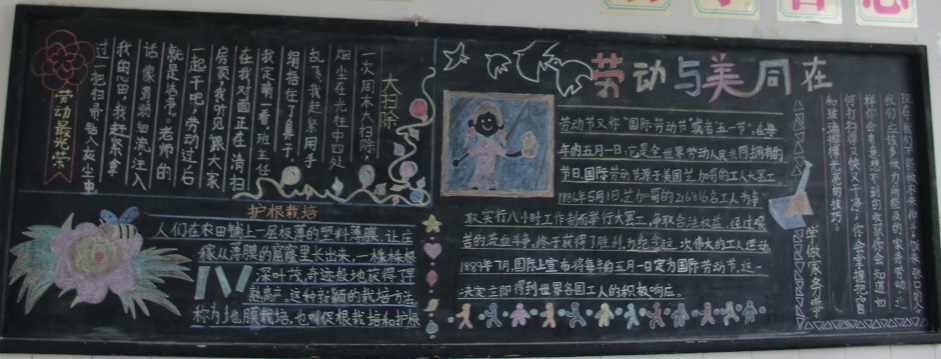 劳动与美同在
劳动最光荣
大扫除
一次周末大扫除，
烟尘在光柱中四处
乱飞，我赶紧用手
绢捂住了鼻子。
我定睛一看，班主任
在我对面正在清扫
房页我听见跟大家
一起干吧，劳动过后
就是洁净。老师的
话像晨溪细流注入
我的心田，我赶紧拿
过一把扫帚钻入灰尘里
护根栽培
人们在农田铺上一层极薄的塑料薄膜，让庄
稼从薄膜的窟窿里长出来，一株株根
深叶茂，奇迹般地获得了早
熟高产。这种新颖的栽培方法
称为地膜栽培，也叫促根栽培和护根
劳动节又称“国际劳动节”或者“五一节”。在每
年的五月一日，它是全世界劳动人民共同拥有的
节日，国际劳动节源于美国芝加哥的工人大罢工
1886年5月1日，芝加哥的216816名工人为争
取实行八小时工作制而举行大罢工，争取合法权益，经过艰
苦的流血斗争，终于获得了胜利，为纪念这次伟大的工人运动
1889年7月，国际上宣布将每年的五月一日定为国际劳动节，这一
决定立即得到世界各国工人的积极响应。
学做家务事
我们应该多做力所能及的家务劳动，这
样你会有意想不到的收获你会知道如
何打扫得又快又干净；你会掌握把窗
和玻璃擦得光亮的技巧。